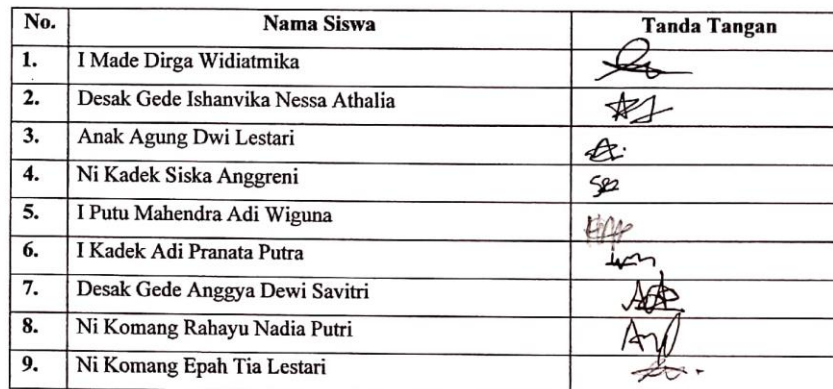 No. Nama Siswa Tanda Tangan
1. I Made Dirga Widiatmika
2. Desak Gede Ishanvika Nessa Athalia
3. Anak Agung Dwi Lestari
4. Ni Kadek Siska Anggreni
5. I Putu Mahendra Adi Wiguna
6. I Kadek Adi Pranata Putra
7. Desak Gede Anggya Dewi Savitri
8. Ni Komang Rahayu Nadia Putri
9. Ni Komang Epah Tia Lestari